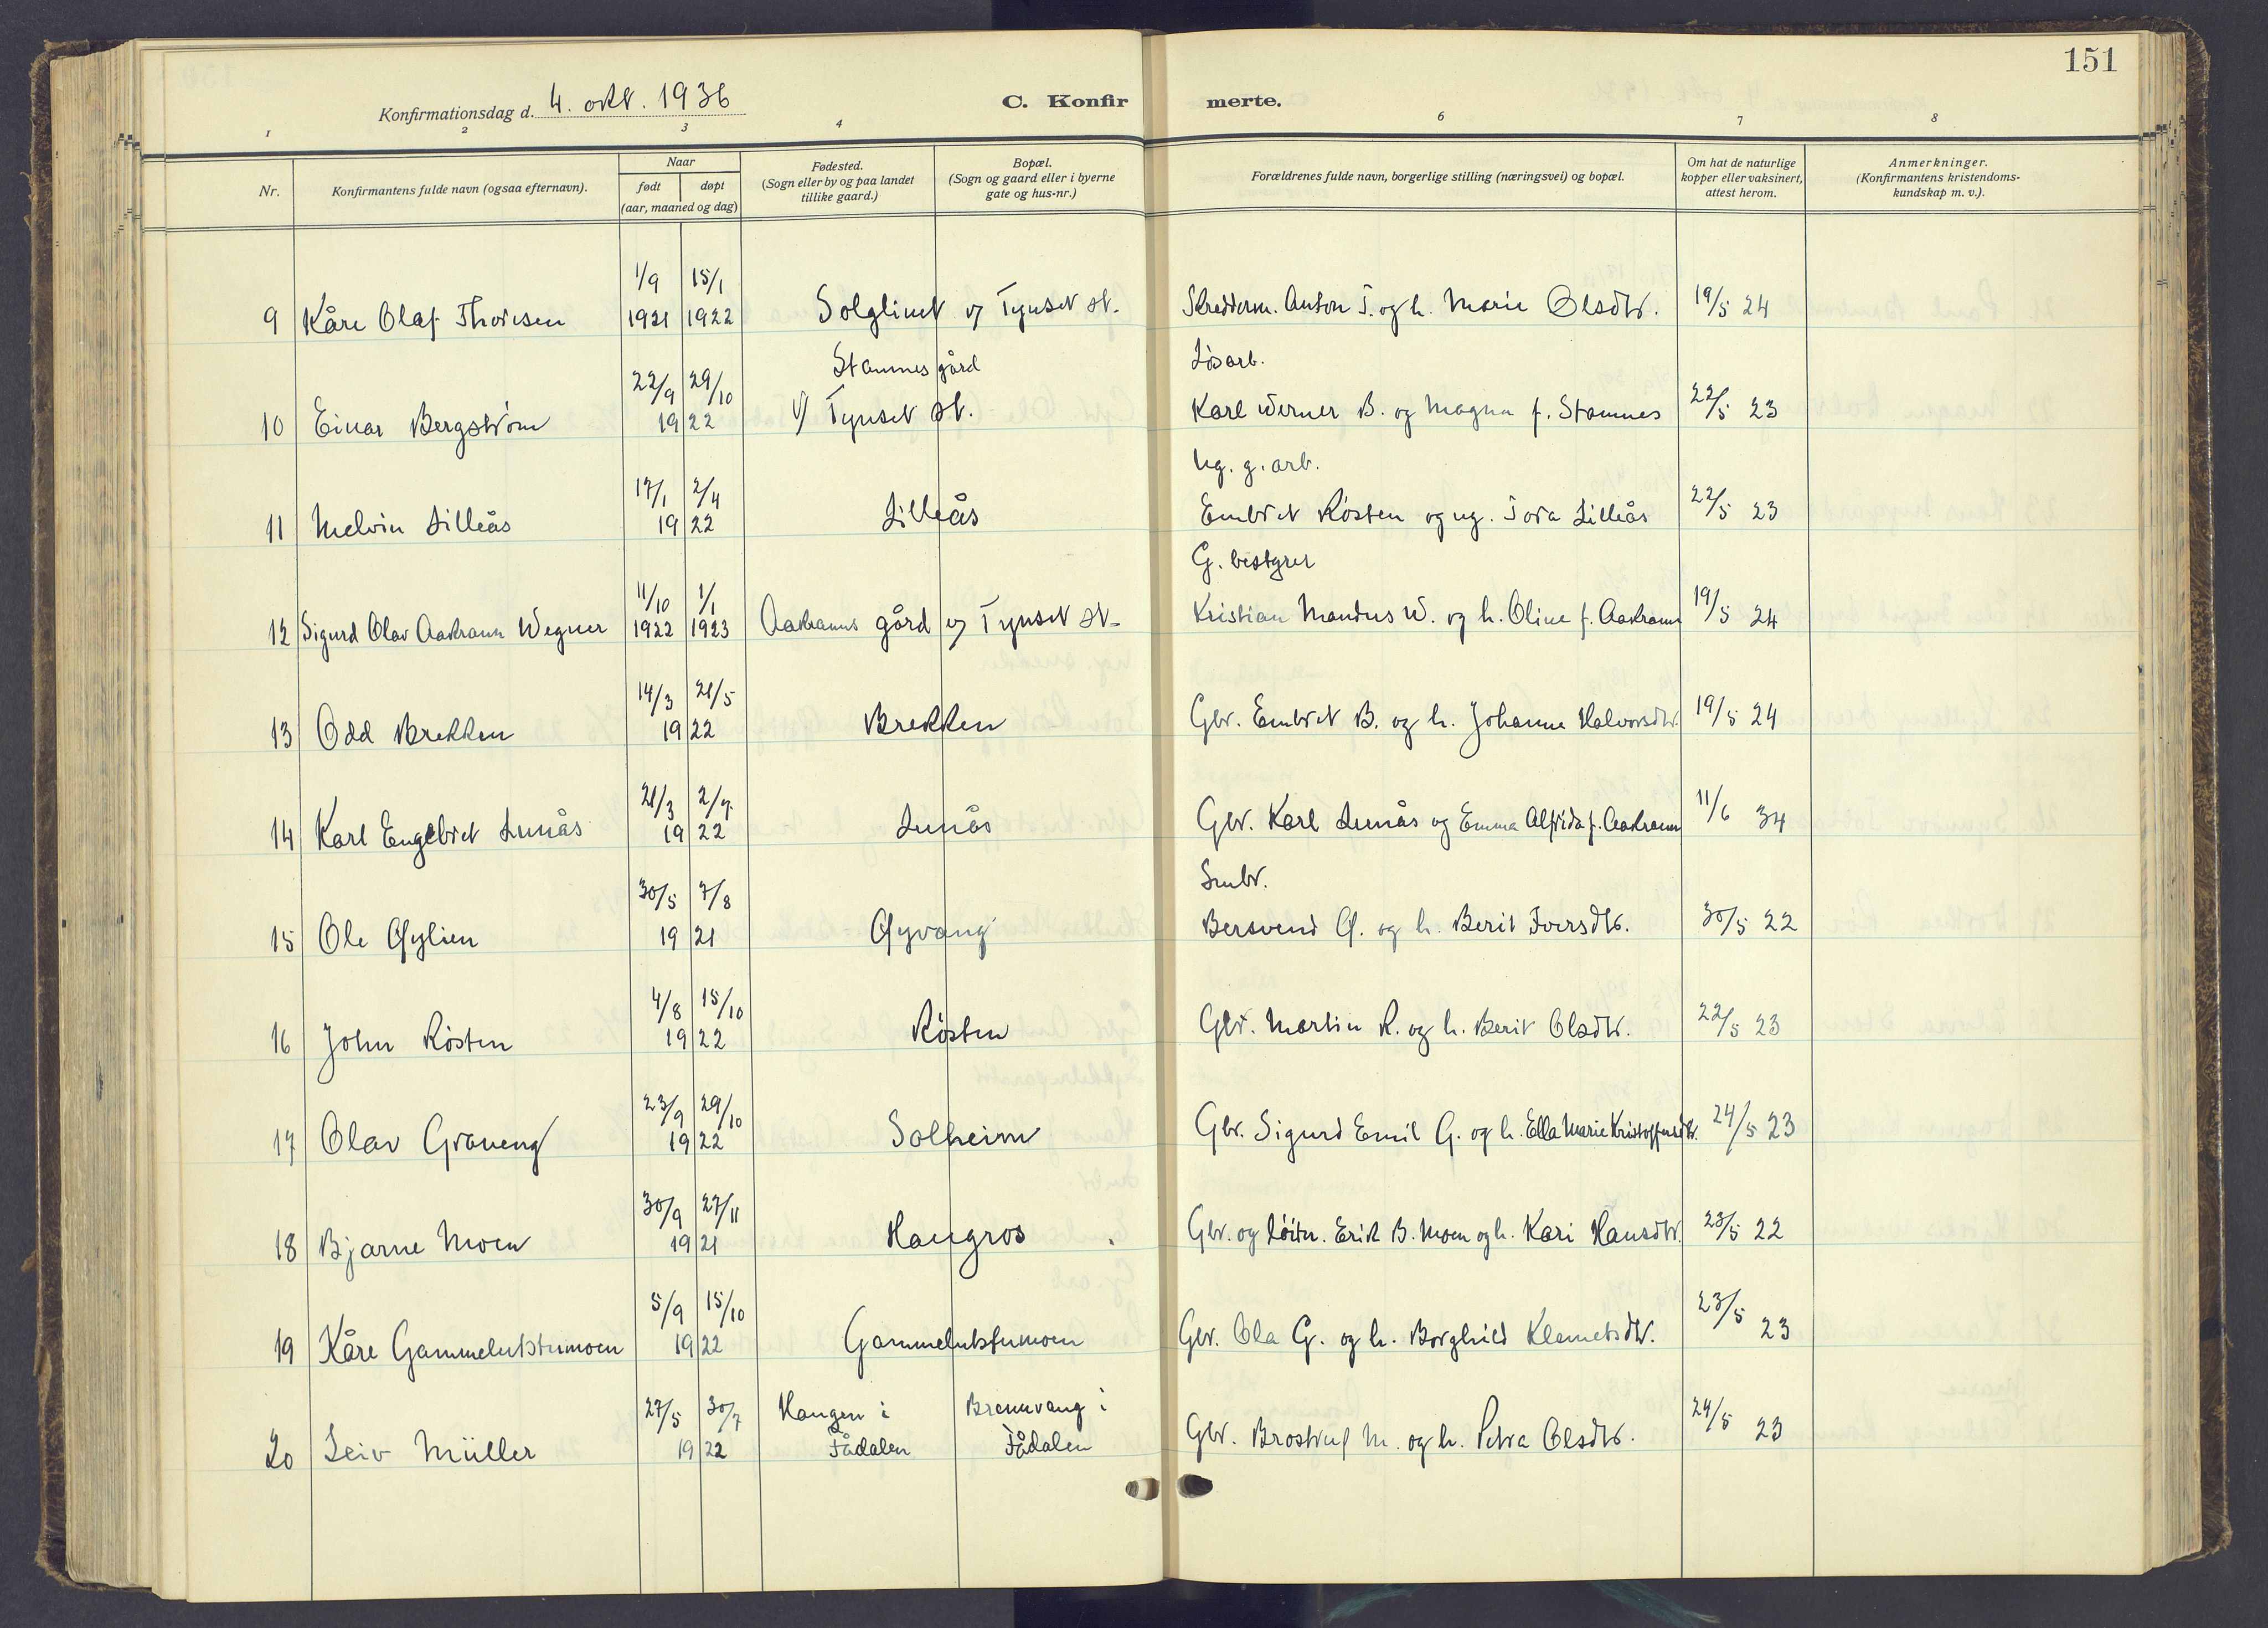 151
Konfirmationsdag d. 4. okt. 1936
C. Konfirmerte.
1 2 3 4 6 7 8
Nr.
Konfirmantens fulde navn (ogsaa efternavn).
Naar
født døpt
(aar, maaned og dag)
Fødested.
(Sogn eller by og paa landet
tillike gaard.)
Bopæl.
(Sogn og gaard eller i byerne
gate og hus-nr.)
Forældrenes fulde navn, borgerlige stilling (næringsvei) og bopæl.
Om hat de naturlige
kopper eller vaksinert,
attest herom.
Anmerkninger.
(Konfirmantens kristendoms-
kundskap m. v.).
1/9 15/1
9 Kåre Olaf Thoresen 1921 1922 Solglimt v/ Tynset st. Skredderm. Anton T. og h. Marie Olsdtr. 19/5 24
22/9 29/10 Stamnes gård Løsarb.
10 Einar Bergstrøm 1922 v/ Tynset st. Karl Werner B. og Magna f. Stamnes 22/5 23
17/1 2/4 Ug. g.arb.
11 Melvin Lilleås 1922 Lilleås Embret Røsten og ug. Tora Lilleås 22/5 23
11/10 1/1 G. bestyrer
12 Sigurd Olav Aakrann Wegner 1922 1923 Aakranns gård v/ Tynset st. Kristian Mandus W. og h. Oline f. Aakrann 19/5 24
14/3 21/5
13 Odd Brekken 1922 Brekken Gbr. Embret B. og h. Johanne Halvorsdtr. 19/5 24
21/3 2/7
14 Karl Engelbret Lunås 1922 Lunås Gbr. Karl Lunås og Emma Alfrida f. Aakrann 11/6 34
30/5 7/8 Smbr.
15 Ole Øylien 1921 Øyvang Bersvend Ø. og h. Berit Iversdtr. 30/5 22
4/8 15/10
16 John Røsten 1922 Røsten Gbr. Martin R. og h. Berit Olsdtr. 22/5 23
23/9 29/10
17 Olav Graneng 1922 Solheim Gbr. Sigurd Emil G. og h. Ella Marie Kristoffersdtr. 24/5 23
30/9 27/11
18 Bjarne Moen 1921 Haugros Gbr. og løitn. Erik B. Moen og h. Kari Hansdtr. 23/5 22
5/9 15/10
19 Kåre Gammelutstumoen 1922 Gammelutstumoen Gbr. Ola G. og h. Borghild Klemetsdtr. 23/5 23
27/5 30/7 Haugen i Brennvang i
20 Leiv Müller 1922 Fådalen Fådalen Gbr. Brostrup M. og h. Petra Olsdtr. 24/5 23